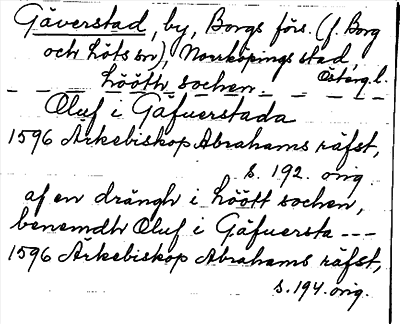 Gäverstad, by, Borgs förs. (f. Borg
och Löts sn), Norrköpings stad,
Östерg.l.
Lööth sochen.
Oluf i Gäfuerstada
1596 Ärkebiskop Abrahams räfst,
s. 192. orig.
af en drängh i Löött sochen,
benemdh Oluf i Gäfuersta ---
1596 Ärkebiskop Abrahams räfst,
s. 194. orig.